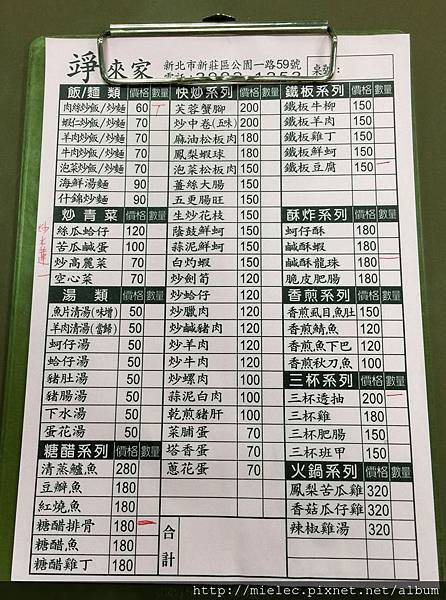 竫來家
新北市新莊區公園一路59號
桌號:
飯/麵類 價格 數量
肉絲炒飯/炒麵 60
蝦仁炒飯/炒麵 70
羊肉炒飯/炒麵 70
牛肉炒飯/炒麵 70
泡菜炒飯/炒麵 70
海鮮湯麵 90
什錦炒麵 90
炒青菜 價格 數量
絲瓜蛤仔 120
苦瓜鹹蛋 100
炒高麗菜 70
空心菜 70
湯類 價格 數量
魚片清湯(味增) 50
羊肉清湯(當歸) 50
蚵仔湯 50
蛤仔湯 50
豬肚湯 50
豬腸湯 50
下水湯 50
蛋花湯 50
糖醋系列 價格 數量
清蒸鱸魚 280
豆瓣魚 180
紅燒魚 180
糖醋排骨 180
糖醋魚 180
糖醋雞丁 180
快炒系列 價格 數量
芙蓉蟹腳 200
炒中卷(五味) 200
麻油松板肉 180
鳳梨蝦球 180
泡菜松板肉 180
薑絲大腸 150
五更腸旺 150
生炒花枝 150
蔭鼓鮮蚵 150
蒜泥鮮蚵 150
白灼蝦 150
炒劍筍 120
炒蛤仔 120
炒臘肉 120
炒鹹豬肉 120
炒羊肉 120
炒牛肉 120
炒螺肉 100
蒜泥白肉 100
乾煎豬肝 100
菜脯蛋 70
塔香蛋 70
蔥花蛋 70
合計
鐵板系列 價格 數量
鐵板牛柳 150
鐵板羊肉 150
鐵板雞丁 150
鐵板鮮蚵 150
鐵板豆腐 150
酥炸系列 價格 數量
蚵仔酥 180
鹹酥蝦 180
鹹酥龍珠 180
脆皮肥腸 180
香煎系列 價格 數量
香煎虱目魚肚 150
香煎鯖魚 120
香煎魚下巴 120
香煎秋刀魚 100
三杯系列 價格 數量
三杯透抽 200
三杯雞 180
三杯肥腸 150
三杯班甲 150
火鍋系列 價格 數量
鳳梨苦瓜雞 320
香菇瓜仔雞 320
辣椒雞湯 320
http://mielec.pixnet.net/album